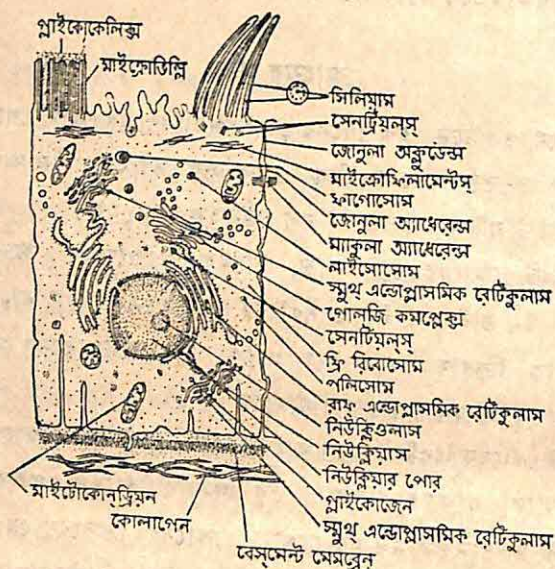 গ্লাইকোকেলিক্স
মাইক্রোভিল্লি
সিলিয়াম
সেনট্রিয়ল্‌স্
জোনুলা অক্লুডেন্স
মাইক্রোফিলামেন্টস্
ফাগোসোম
জোনুলা অ্যাধেরেন্স
ম্যাকুলা অ্যাধেরেন্স
লাইসোসোম
স্মুথ্ এন্ডোপ্লাসমিক রেটিকুলাম
গোলজি কমপ্লেক্স
সেনটিয়ল্‌স্
ফ্রি রিবোসোম
পলিসোম
রাফ্ এন্ডোপ্লাসমিক রেটিকুলাম
নিউক্লিওলাস
নিউক্লিয়াস
নিউক্লিয়ার পোর
গ্লাইকোজেন
স্মুথ্ এন্ডোপ্লাসমিক রেটিকুলাম
মাইটোকোন্‌ড্রিয়ন
কোলাগেন
বেস্‌মেন্ট মেমব্রেন